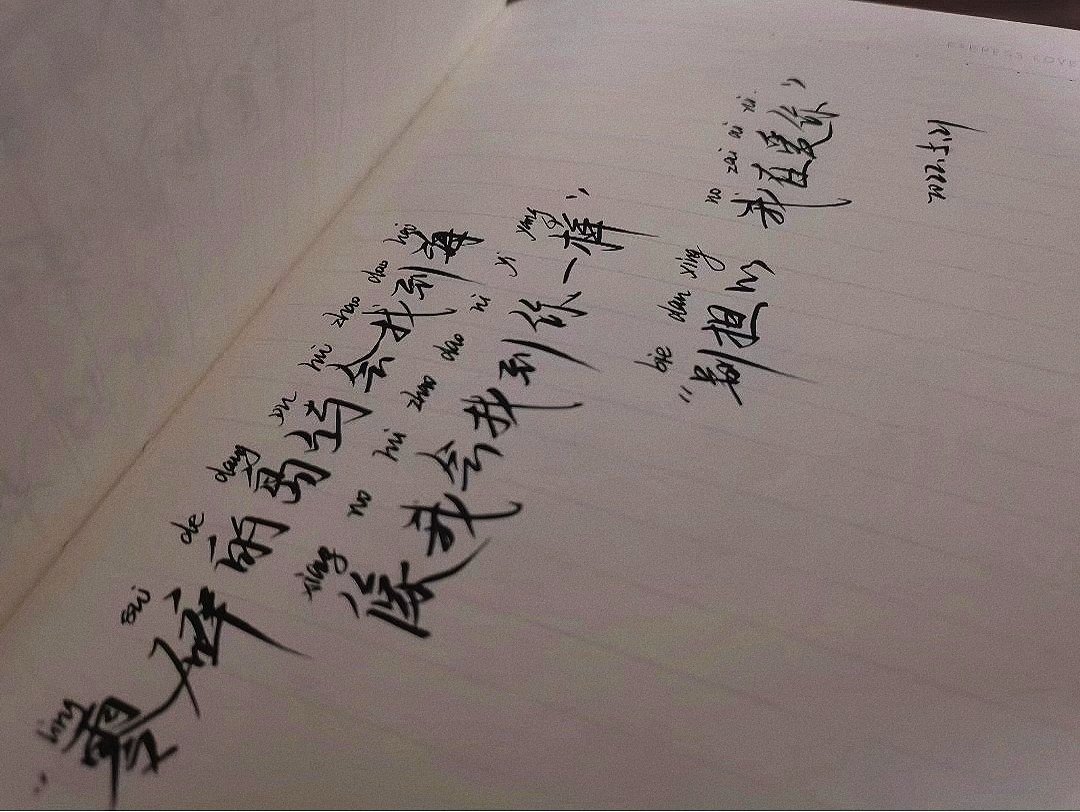 EXPRESS LOVE
ling sui de dang yu hui zhao dao hai
“零碎的岛屿会找到海
xiang wo hui zhao dao ni yi yang
像我会找到你一样”
bie dan xing wo zai ai ni
“别担心 我在爱你”
2022.5.21